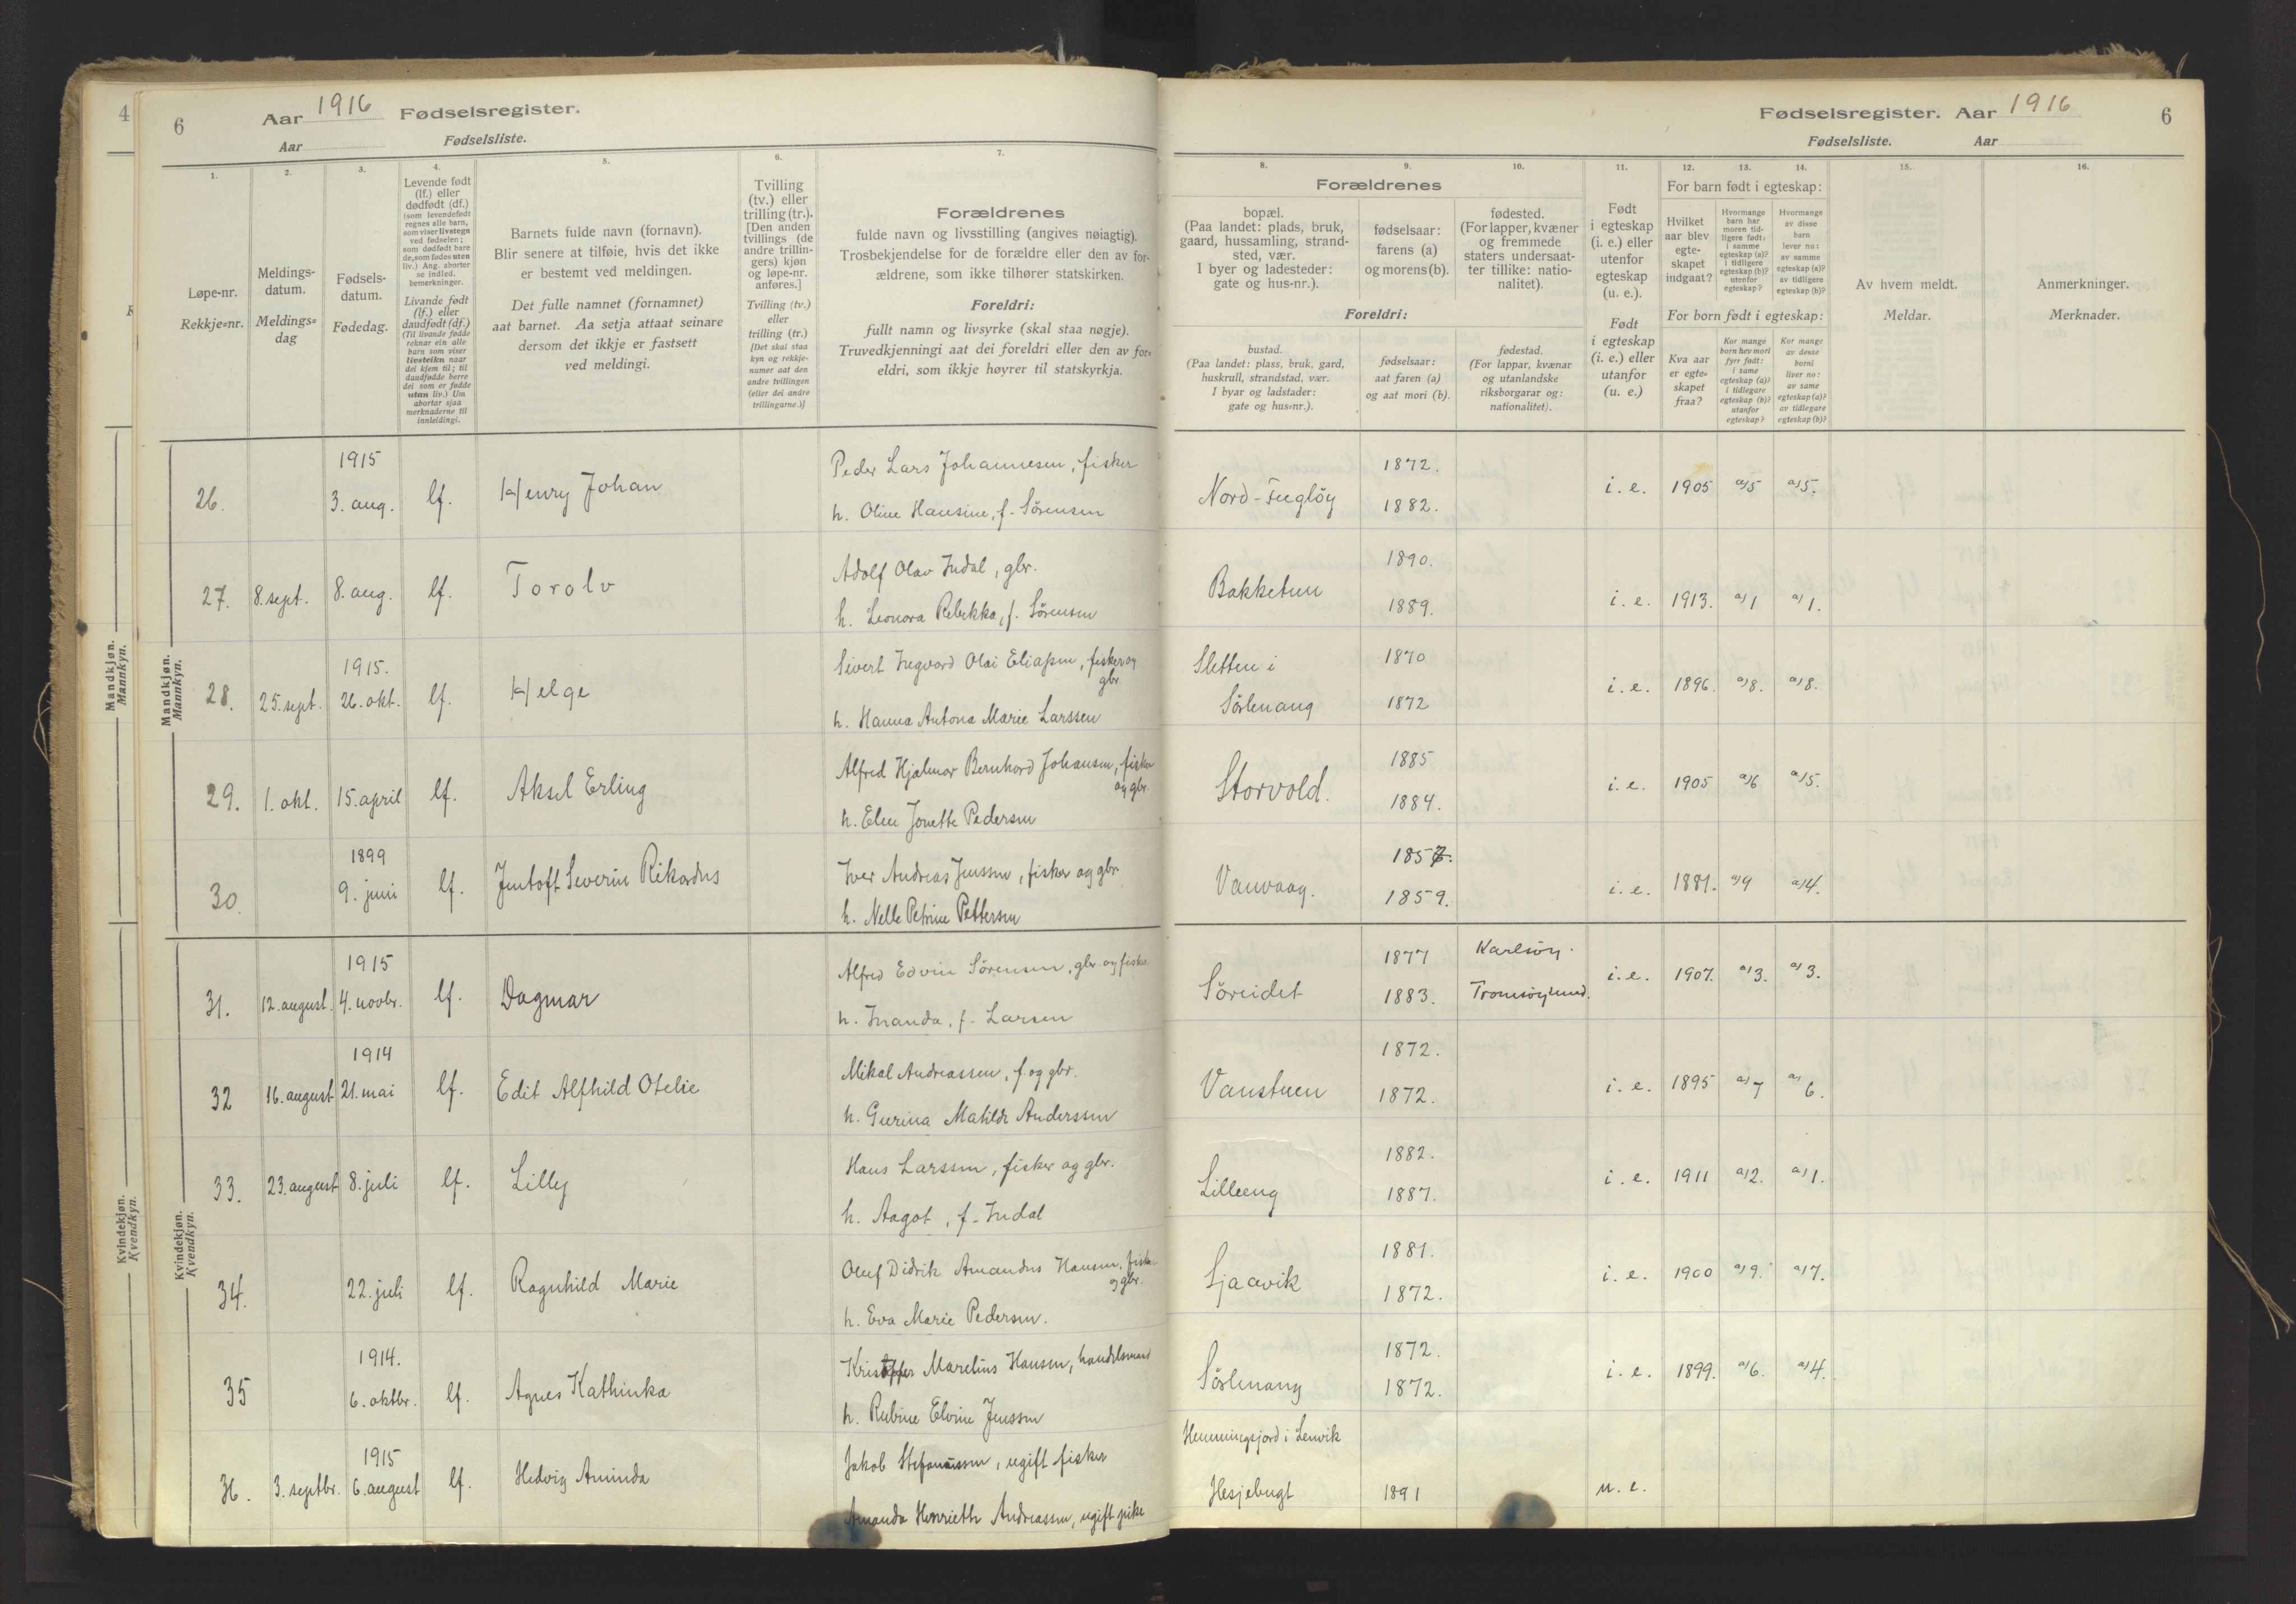 4
6
Aar 1916 Fødselsregister.
Aar Fødselsliste.
1. 2. 3. 4. 5. 6. 7.
Løpe-nr.
Rekkje=nr.
Meldings-
datum.
Meldings=
dag
Fødsels-
datum.
Fødedag.
Levende født
(lf.) eller
dødfødt (df.)
(som levendefødt
regnes alle barn,
som viser livstegn
ved fødselen;
som dødfødt bare
de, som fødes uten
liv.) Ang. aborter
se indled.
bemerkninger.
Livande født
(lf.) eller
daudfødt (df.)
(Til livande fødde
reknar ein alle
barn som viser
livsteikn naar
dei kjem til; til
daudfødde berre
dei som er fødde
utan liv.) Um
abortar sjaa
merknaderne til
innleidingi.
Barnets fulde navn (fornavn).
Blir senere at tilføie, hvis det ikke
er bestemt ved meldingen.
Det fulle namnet (fornamnet)
aat barnet. Aa setja attaat seinare
dersom det ikkje er fastsett
ved meldingi.
Tvilling
(tv.) eller
trilling (tr.).
[Den anden
tvillings (de
andre trillin-
gers) kjøn
og løpe-nr.
anføres.]
Tvilling (tv.)
eller
trilling (tr.)
[Det skal staa
kyn og rekkje-
numer aat den
andre tvillingen
(eller dei andre
trillingarne.)]
Forældrenes
fulde navn og livsstilling (angives nøiagtig).
Trosbekjendelse for de forældre eller den av for-
ældrene, som ikke tilhører statskirken.
Foreldri:
fullt namn og livsyrke (skal staa nøgje).
Truvedkjenningi aat dei foreldri eller den av for=
eldri, som ikkje høyrer til statskyrkja.
Mandkjøn.
Mannkyn.
Kvindekjøn.
Kvendkyn.
Mandkjøn.
Mannkyn.
1915
26. 3. aug. lf. Henry Johan Peder Lars Johannesen, fisker
h. Oline Hansine, f. Sörensen
27. 8. sept. 8. aug. lf. Torolv Adolf Olav Indal, gbr.
h. Leonora Rebekka, f. Sörensen
1915.
28. 25. sept. 26. okt. lf. Helge Sivert Ingvard Olai Eliassen, fisker og
gbr.
h. Hanna Antona Marie Larssen
29. 1. okt. 15. april lf. Aksel Erling Alfred Hjalmar Bernhard Johansen, fisker
og gbr.
h. Elen Jonette Pedersen
1899
30. 9. juni lf. Jentoft Severin Rikardus Iver Andreas Jenssen, fisker og gbr.
h. Nelle Petrine Pettersen
Kvindekjøn.
Kvendkyn.
1915
31. 12. august. 4. novbr. lf. Dagmar Alfred Edvin Sörensen, gbr. og fisker
h. Inanda, f. Larsen
1914
32 16. august 21. mai lf. Edit Alfhild Otelie Mikal Andreassen, f. og gbr.
h. Gurina Matilde Anderssen
33. 23. august 8. juli lf. Lilly Hans Larssen, fisker og gbr.
h. Aagot, f. Indal
34. 22. juli lf. Ragnhild Marie Oluf Didrik Amandus Hansen, fisker
og gbr.
h. Eva Marie Pedersen.
1914.
35 6. oktbr. lf. Agnes Kathinka Kristoffer Marelius Hansen, handelsmand
h. Rubine Elvine Jenssen
1915
36. 3. septbr. 6. august lf. Hedvig Aminda Jakob Stefanussen, ugift fisker
Amanda Henriette Andreassen, ugift pike
Fødselsregister. Aar 1916
6
Fødselsliste. Aar
8. 9. 10. 11. 12. 13. 14. 15. 16.
Forældrenes
bopæl.
(Paa landet: plads, bruk,
gaard, hussamling, strand-
sted, vær.
I byer og ladesteder:
gate og hus-nr.).
fødselsaar:
farens (a)
og morens (b).
fødested.
(For lapper, kvæner
og fremmede
staters undersaat-
ter tillike: natio-
nalitet).
Foreldri:
bustad.
(Paa landet: plass, bruk, gard,
huskrull, strandstad, vær.
I byar og ladstader:
gate og hus=nr.).
fødselsaar:
aat faren (a)
og aat mori (b).
fødestad.
(For lappar, kvænar
og utanlandske
riksborgarar og:
nationalitet).
Født
i egteskap
(i. e.) eller
utenfor
egteskap
(u. e.).
Født
i egteskap
(i. e.) eller
utanfor
(u. e.)
For barn født i egteskap:
Hvilket
aar blev
egte-
skapet
indgaat?
Hvormange
barn har
moren tid-
ligere født:
i samme
egteskap (a)?
i tidligere
egteskap (b)?
utenfor
egteskap?
Hvormange
av disse
barn
lever nu:
av samme
egteskap (a)?
av tidligere
egteskap (b)?
For born født i egteskap:
Kva aar
er egte=
skapet
fraa?
Kor mange
born hev mori
fyrr født:
i same
egteskap (a)?
i tidlegare
egteskap (b)?
utanfor
egteskap?
Kor mange
av desse
borni
liver no:
av same
egteskap (a)?
av tidlegare
egteskap (b)?
Av hvem meldt.
Meldar.
Anmerkninger.
Merknader.
1872.
Nord-Fugløy i. e. 1905 a)5 a)5.
1882.
1890.
Bakketun i. e. 1913. a)1 a)1.
1889.
Sletten i 1870
i. e. 1896. a)8. a)8.
Sörlenang 1872
1885
Storvold. i. e. 1905 a)6 a)5.
1884.
1857.
Vanvaag. i. e. 1881. a)9 a)4.
1859.
1877 Karlsöy.
Söreidet i. e. 1907. a)3. a)3.
1883. Tromsöysund.
1872.
Vanstuen i. e. 1895 a)7 a)6.
1872.
1882.
Lilleeng i. e. 1911 a)2. a)1.
1887.
1881.
Sjaavik i. e. 1900 a)9. a)7.
1872.
1872.
Sörlenang i. e. 1899. a)6. a)4.
1872.
Hemmingsjord i Lenvik
Hesjebugt 1891 u. e.